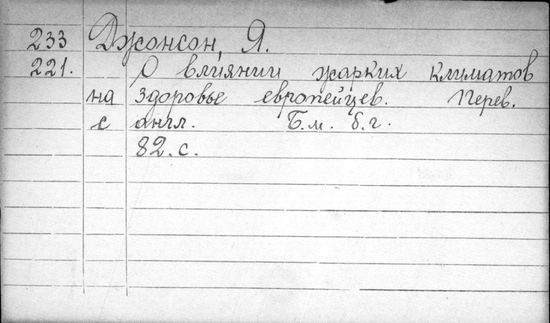 233 Джонсон, Я.
221. О влиянии жарких климатов
на здоровье европейцев. Перев.
с англ. Б.м. б.г.
82.с.